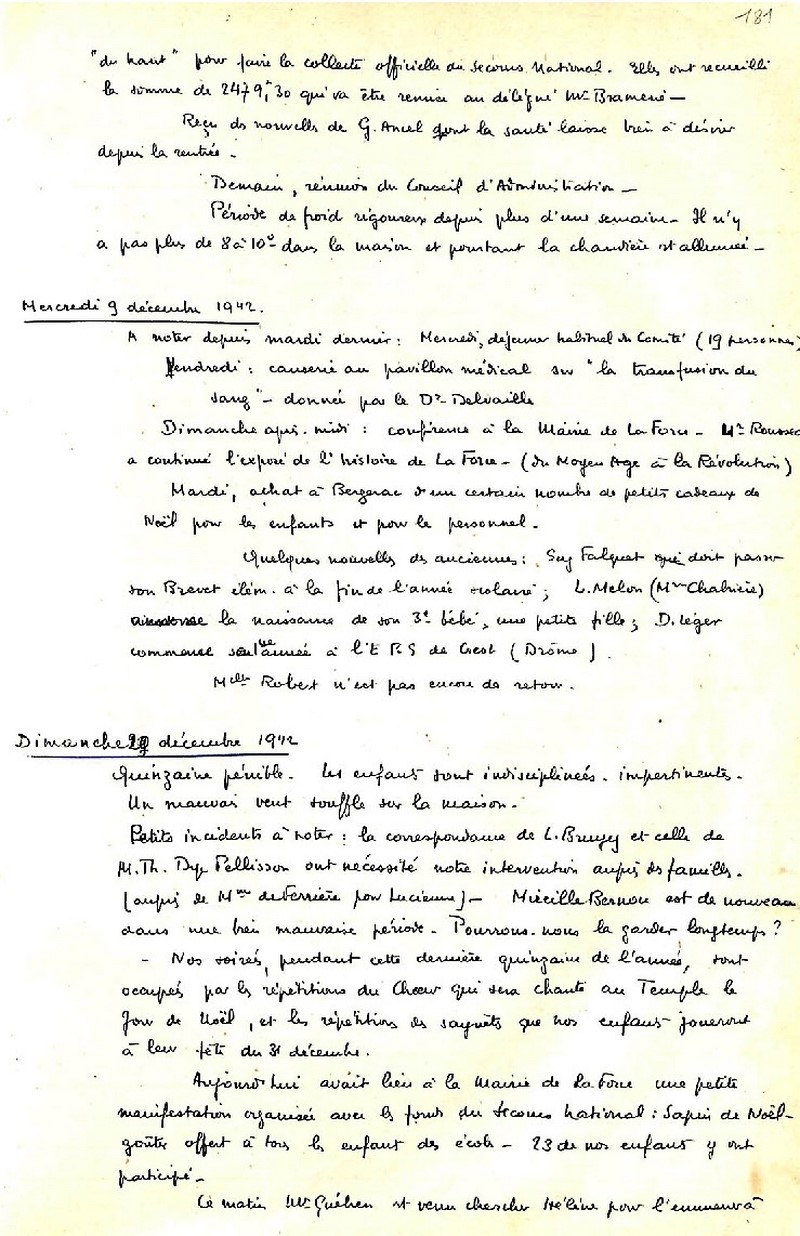 181
"du haut" pour faire la collecte officielle du Secours National. Elles ont recueilli
la somme de 2479,30 qui va être remise au délégué Mr Bramené —
Reçu des nouvelles de G. Ancel dont la santé laisse bien à désirer
depuis la rentrée.
Demain, réunion du Conseil d'Administration —
Période de froid rigoureux depuis plus d'une semaine — Il n'y
a pas plus de 8 à 10° dans la maison et pourtant la chaudière est allumée —
Mercredi 9 décembre 1942.
A noter depuis mardi dernier : Mercredi, déjeuner habituel du Comité (19 personnes)
Vendredi : causerie au pavillon médical sur "la transfusion du
sang" — donnée par le Dr Delvaille
Dimanche après-midi : conférence à la Mairie de La Force — Mr
a continué l'exposé de l'histoire de La Force — (du Moyen Age à la Révolution)
Mardi, achat à Bergerac d'un certain nombre de petits cadeaux de
Noël pour les enfants et pour le personnel.
Quelques nouvelles des anciennes : Suz Falquet qui doit passer
son Brevet élém. à la fin de l'année scolaire ; L. Melon (Mme Chabrière)
annonce la naissance de son 3e bébé, une petite fille ; D. Léger
commence année à l'E P S de Crest (Drôme).
Melle Robert n'est pas encore de retour.
Dimanche décembre 1942
Quinzaine pénible. Les enfants sont indisciplinées. impertinentes.
Un mauvais vent souffle sur la maison.
Petits incidents à noter : la correspondance de L. Bruyey et celle de
M. Th. Pellisson ont nécessité notre intervention auprès des familles.
(auprès de Mme de Ferrière pour Lucienne) — Mireille Bernon est de nouveau
dans une bien mauvaise période. Pourrons-nous la garder longtemps ?
- Nos soirées, pendant cette dernière quinzaine de l'année, sont
occupées par les répétitions du Chœur qui sera chanté au Temple le
Jour de Noël, et les répétitions des saynètes que nos enfants joueront
à leur fête du 31 décembre.
Aujourd'hui avait lieu à la Mairie de La Force une petite
manifestation organisée avec les fonds du Secours National : Sapin de Noël -
goûter offert à tous les enfants des écoles — 23 de nos enfants y ont
participé —
Ce matin Mr Guéhen est venu chercher Hélène pour l'emmener à